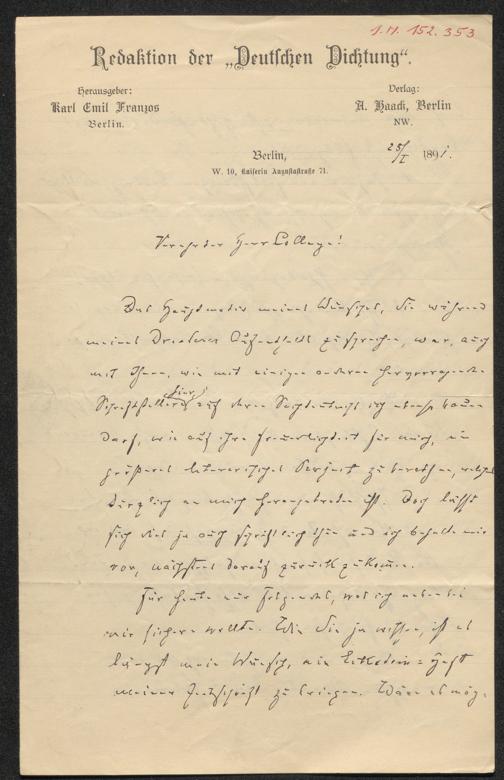 J.N. 152.353
Redaktion der „Deutschen Dichtung“.
Herausgeber:
Karl Emil Franzos
Berlin.
Verlag:
A. Haack, Berlin
NW.
Berlin,
W. 10, Kaiserin Augustastraße 71.
25/I 1891.
Verehrter Herr College!
Das Hauptmotiv meines Wunsches, Sie während
meines Dresdener Aufenthalts zu sprechen, war, auch
mit Ihnen, wie mit einigen anderen hervorragenden
Schriftstellern hier, auf deren Sachkenntniß ich ebenso bauen
darf, wie auf ihre Freundlichkeit für mich, ein
größeres literarisches Project zu berathen, welches
kürzlich an mich herangetreten ist. Doch läßt
sich dies ja auch schriftlich thun und ich behalte mir
vor, nächstens darauf zurückzukommen.
Für heute nur Folgendes, was ich nebenbei
mir sichern wollte. Wie Sie ja wissen, ist es
längst mein Wunsch, ein Heft
meiner Zeitschrift zu bringen. Wäre es mög-